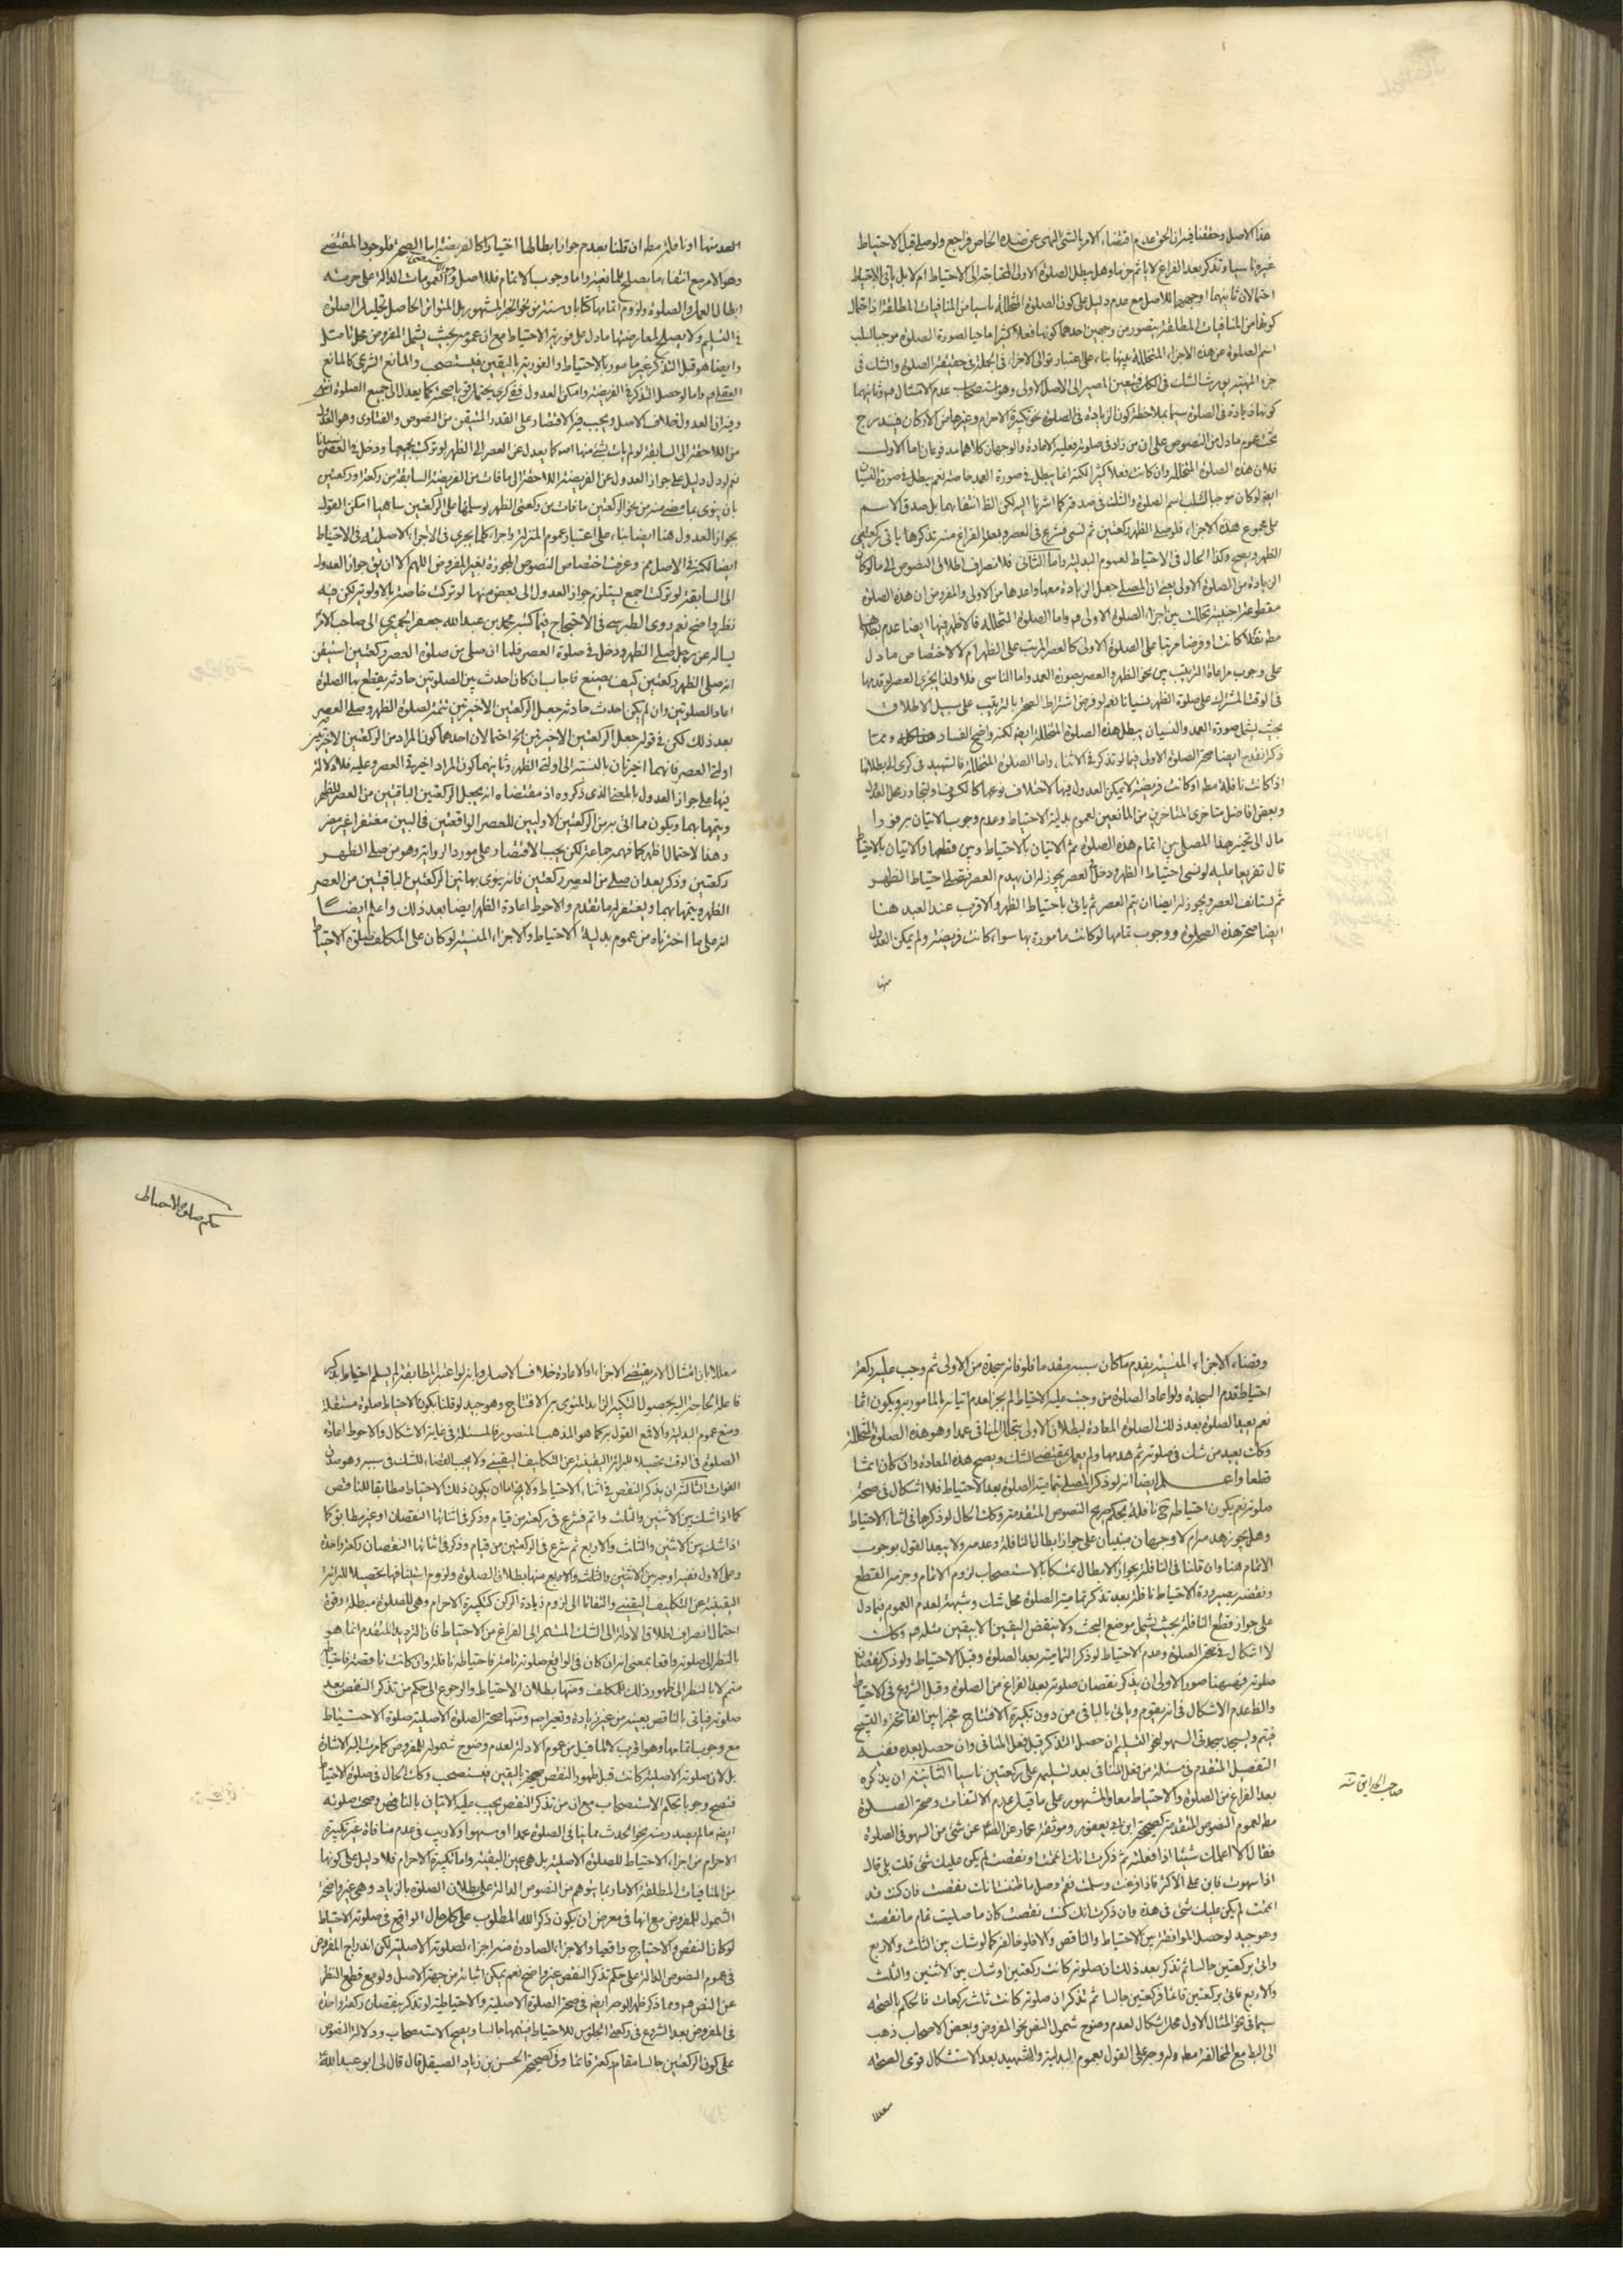 هذا الاصل وحققنا فيه ان الحق عدم اقتضاء الامر بالشئ النهى عن ضده الخاص فراجع ولو صلى قبل الاحتياط
غيره ناسيا وتذكر بعد الفراغ لا ياثم جزما وهل يبطل الصلوة الاولى المحتاجة الى الاحتياط ام لا بل ياتى بالاحتياط
احتمالان ثانيهما اوجههما للاصل مع عدم دليل على كون الصلوة المتخللة ناسيا من المنافيات المطلقة اذ احتمال
كونها من المنافيات المطلقة يتصور من وجهين احدهما كونها فعلا كثيرا ماحيا لصورة الصلوة موجبا لسلب
اسم الصلوة عن هذه الاجزاء المتخللة بينها بناء على اعتبار توالى الاجزاء فى الجملة فى حقيقة الصلوة والشك فى
جزء المهية يورث الشك فى الكل فيتعين المصير الى الاصل الاولى وهو استصحاب عدم الامتثال فيه وثانيهما
كونها زيادة فى الصلوة سيما بملاحظة كون الزيادة فى الصلوة نحو تكبيرة الاحرام وغيرها من الاركان فيندرج
تحت عموم ما دل من النصوص على ان من زاد فى صلوته فعليه الاعادة والوجهان كلاهما مدفوعان اما الاول
فلان هذه الصلوة المتخللة وان كانت فعلا كثيرا لكنه انما يبطل فى صورة العمد خاصة نعم يبطل فى صورة النسيان
ايضا لو كان موجبا لسلب اسم الصلوة والشك فى صدقه كما اشرنا اليه لكن الظ انتفائهما بل صدق الاسم
على مجموع هذه الاجزاء فلو صلى الظهر ركعتين ثم نسى فشرع فى العصر وبعد الفراغ منه تذكرها ياتى بركعتى
الظهر ويصح وكذا الحال فى الاحتياط لعموم البدلية واما الثانى فلانصراف اطلاق النصوص الى ما لو كان
الزيادة من الصلوة الاولى بمعنى ان المصلى جعل الزيادة معها واعدها من الاولى والمفروض ان هذه الصلوة
مقطوعة اجنبية تخللت بين اجزاء الصلوة الاولى فيه واما الصلوة المتخللة فالاظهر فيها ايضا عدم بطلانها
مطه نفلا كانت او فرضا مرتبا على الصلوة الاولى كالعصر المرتب على الظهر ام لا لاختصاص ما دل
على وجوب مراعاة الترتيب بين نحو الظهر والعصر بصورة العمد واما الناسى فلا ولذا يجزى العصر لو قدمها
فى الوقت المشترك على صلوة الظهر نسيانا نعم لو فرض اشتراط الصحة بالترتيب على سبيل الاطلاق
بحيث يشمل صورة العمد والنسيان يبطل هذه الصلوة المتخللة ايضا لكنه واضح الفساد هذا كله ومما
ذكرنا يقدح ايضا صحة الصلوة الاولى فيما لو تذكر فى الاثناء واما الصلوة المتخللة فالشهيد فى كرى الى بطلانها
اذ كانت نافلة مطه او كانت فريضة لا يمكن العدول فيها لاختلاف نوعها كالكسوف او لتجاوز محل العدول
وبعض افاضل متاخرى المتاخرين من المانعين لعموم بدلية الاحتياط وعدم وجوب الاتيان به فورا
مال الى تخيير هذا المصلى بين اتمام هذه الصلوة ثم الاتيان بالاحتياط وبين قطعها والاتيان بالاحتياط
قال تفريعا عليه لو نسى احتياط الظهر ودخل العصر يجوز له ان يهدم العصر فيصلى احتياط الظهر
ثم يستانف العصر ويجوز له ايضا ان يتم العصر ثم ياتى باحتياط الظهر والاقرب عند العبد هنا
ايضا صحة هذه الصلوة ووجوب تمامها لو كانت مامورة بها سواء كانت فريضة ولم يمكن العدول
منها
العدول منها او نافلة مطه ان قلنا بعدم جواز ابطالها اختيارا كالفريضة اما الصحة فلوجود المقتضى
وهو الامر مع انتفاء ما يصلح للمانعية واما وجوب الاتمام فللاصل والعمومات الدالة على حرمة
ابطال العمل والصلوة ولزوم اتمامها كتابا وسنة من نحو الخبر المشهور بل المتواتر الحاصل تحليل الصلوة
فى التسليم ولا يصلح لمعارضتها ما دل على فورية الاحتياط مع ان عمومه بحيث يشمل المفروض محل تامل
وايضا هو قبل التذكر غير مامور بالاحتياط والفورية باليقين فيستصحب والمانع الشرعى كالمانع
العقلى واما لو حصل التذكر فى الفريضة وامكن العدول ففى كرى يحتمل قويا صحته كما يعدل الى جميع الصلوة انتهى
وفيه ان العدول خلاف الاصل ويجب فيه الاقتصار على القدر المتيقن من النصوص والفتاوى وهو العدول
من اللاحقة الى السابقة لو لم يات بشئ منها اصلا كما يعدل عن العصر الى الظهر لو تركت بجميعها ودخل فى العصر نسيانا
نعم لو دل دليل على جواز العدول عن الفريضة اللاحقة الى ما فات من الفريضة السابقة من ركعة او ركعتين
بان ينوى بما مضى منه من نحو الركعتين ما فات من ركعتى الظهر لو سلم فيها على الركعتين ساهيا امكن القول
بجواز العدول هنا ايضا بناء على اعتبار عموم المنزلة واجراء كلما يجرى فى الاجزاء الاصلية فى الاحتياط
ايضا لكنه فى الاصل مم وعرفت اختصاص النصوص المجوزة لغير المفروض اللهم الا ان يق جواز العدول
الى السابقة لو تركت اجمع يستلزم جواز العدول الى بعض منها لو تركت خاصة بالاولوية لكن فيه
نظر واضح نعم روى الطبرسى فى الاحتجاج فيما كتبه محمد بن عبدالله جعفر الحميرى الى صاحب الامر
يساله عن رجل صلى الظهر ودخل فى صلوة العصر فلما ان صلى من صلوة العصر ركعتين استيقن
انه صلى الظهر ركعتين كيف يصنع فاجاب ان كان احدث بين الصلوتين حادثة يقطع بها الصلوة
اعاد الصلوتين وان لم يكن احدث حادثة جعل الركعتين الاخيرتين تتمة لصلوة الظهر وصلى العصر
بعد ذلك لكن فى قوله جعل الركعتين الاخيرتين الخ احتمالان احدهما كون المراد من الركعتين الاخيرتين
اولتى العصر فانهما اخيرتان بالنسبة الى اولتى الظهر وثانيهما كون المراد اخيرتى العصر وعليه فلا دلالة
فيها على جواز العدول بالمعنى الذى ذكروه اذ مقتضاه انه يجعل الركعتين الباقيتين من العصر للظهر
ويتمها بهما ويكون ما اتى به من الركعتين الاوليين للعصر الواقعتين فى البين مغتفرا غير مضر
وهذا الاحتمال اظهر كما فهمه جماعة لكن يجب الاقتصار على مورد الرواية وهو من صلى الظهر
ركعتين وذكر بعد ان صلى من العصر ركعتين فانه ينوى بهاتين الركعتين الباقيتين من العصر
الظهر ويتمها بهما ويغتفر له ما تقدم والاحوط اعادة الظهر ايضا بعد ذلك واعلم ايضا
انه على ما اخترناه من عموم بدلية الاحتياط والاجزاء المنسية لو كان على المكلف صلوة الاحتياط
حكم صلوة الاحتياط
وقضاء الاجزاء المنسية يقدم ما كان سببه مقدما فلو فاته سجدة من الاولى ثم وجب عليه ركعة
احتياط قدم السجدة ولو اعاد الصلوة من وجب عليه الاحتياط لم يجز لعدم اتيانه بالمامور به ويكون اثما
نعم يعيد الصلوة بعد ذلك الصلوة المعادة لبطلان الاولى بتخلل المنافى عمدا وهو هذه الصلوة المتخللة
وكذا يعيد من شك فى صلوته ثم هدمها ولم يعمل بمقتضى الشك ويصح هذه المعادة وان كان اثما
قطعا واعلم ايضا انه لو ذكر المصلى تمامية الصلوة بعد الاحتياط فلا اشكال فى صحة
صلوته نعم يكون احتياطه ح نافلة بحكم صريح النصوص المتقدمة وكذا الحال لو ذكرها فى اثناء الاحتياط
وهل يجوز هدمه ام لا وجهان مبنيان على جواز ابطال النافلة وعدمه ولا يبعد القول بوجوب
الاتمام هنا وان قلنا فى النافلة بجواز الابطال تمسكا بالاستصحاب لزوم الاتمام وحرمة القطع
ونقضه بصيرورة الاحتياط نافلة بعد تذكر تمامية الصلوة محل شك وشبهة لعدم العموم فيما دل
على جواز قطع النافلة بحيث يشمل موضع البحث ولا ينقض اليقين الا بيقين مثله فيه وكذا
لا اشكال فى صحة الصلوة وعدم الاحتياط لو ذكر التمامية بعد الصلوة وقبل الاحتياط ولو ذكر نقصان
صلوته فهيهنا صور الاولى ان يذكر نقصان صلوته بعد الفراغ من الصلوة وقبل الشروع فى الاحتياط
والظ عدم الاشكال فى انه يقوم وياتى بالباقى من دون تكبيرة الافتتاح مخيرا بين الفاتحة والتسبيح
فيتم ويسجد سجدتى السهو لنحو التسليم ان حصل التذكر قبل فعل المنافى وان حصل بعده ففيه
التفصيل المتقدم فى مسئلة من فعل المنافى بعد تسليمه على ركعتين ناسيا الثانية ان يذكره
بعد الفراغ من الصلوة والاحتياط معا والمشهور على ما قيل عدم الالتفات وصحة الصلوة
مطه لعموم النصوص المتقدمة كصحيحة ابن ابى يعفور وموثقة عمار عن الصادق عن شئ من السهو فى الصلوة
فقال الا اعلمك شيئا اذا فعلته ثم ذكرت انك اتممت او نقصت لم يكن عليك شئ قلت بلى قال
اذا سهوت فابن على الاكثر فاذا فرغت وسلمت فقم وصل ما ظننت انك نقصت فان كنت قد
اتممت لم يكن عليك شئ فى هذه وان ذكرت انك كنت نقصت كان ما صليت تمام ما نقصت
وهو جيد لو حصل الموافقة بين الاحتياط والناقص والا فلو خالفه كما لو شك بين الثلث والاربع
واتى بركعتين جالسا ثم تذكر بعد ذلك ان صلوته كانت ركعتين او شك بين الاثنين والثلث
والاربع فاتى بركعتين قائما وركعتين جالسا ثم تذكر ان صلوته كانت ثلث ركعات فالحكم بالصحة
سيما فى نحو المثال الاول محل اشكال لعدم وضوح شمول النص نحو المفروض وبعض الاصحاب ذهب
الى البط مع المخالفة مطه وله وجه على القول بعموم البدلية والشهيد بعد الاستشكال قوى الصحة
معللا
صاحب الحدائق منه
معللا بان امتثال الامر يقتضى الاجزاء والاعادة خلاف الاصل وبانه لو اعتبر المطابقة لم يسلم احتياط يذكر
فاعله الحاجة اليه لحصول التكبير الزائد المنوى به الافتتاح وهو جيد لو قلنا بكون الاحتياط صلوة مستقلة
ومنع عموم البدلية والا فمع القول به كما هو المذهب المنصور فالمسئلة فى غاية الاشكال والاحوط اعادة
الصلوة فى الوقت تحصيلا للبرائة اليقينية عن التكاليف اليقينية ولا يجب القضاء للشك فى سببه وهو صدق
الفوات الثالثة ان يذكر النقص فى اثناء الاحتياط ولا يخ اما ان يكون ذلك الاحتياط مطابقا للناقص
كما اذا شك بين الاثنين والثلث واتم فشرع فى ركعة من قيام وذكر فى اثنائها النقصان او غير مطابق كما
اذا شك بين الاثنين والثلث والاربع ثم شرع فى الركعتين من قيام وذكر فى اثنائها النقصان ركعة واحدة
وعلى الاول ففيه اوجه بين الاثنين والثلث والاربع منها بطلان الصلوة ولزوم استينافها تحصيلا للبرائة
اليقينية عن التكاليف اليقينية والتفاتا الى لزوم زيادة الركن كتكبيرة الاحرام وهى للصلوة مبطلة وقوة
احتمال انصراف اطلاق الادلة الى الشك المستمر الى الفراغ من الاحتياط فان الترديد المتقدم انما هو
بالنظر الى صلوته واقعا بمعنى انه ان كان فى الواقع صلوته تامة فاحتياطه نافلة وان كانت ناقصة فاحتياطه
متمم لا بالنظر الى ظهور ذلك للمكلف ومنها بطلان الاحتياط والرجوع الى حكم من تذكر النقص بعد
صلوته فياتى بالناقص بعينه من غير زيادة وتغيير اصه ومنها صحة الصلوة الاصلية صلوة الاحتياط
مع وجوب اتمامها وهو اقرب لا لما قيل من عموم الادلة لعدم وضوح شموله للمفروض كما مرت اليه الاشارة
بل لان صلوته الاصلية كانت قبل ظهور النقص صحيحة باليقين فيستصحب وكذا الحال فى صلوة الاحتياط
فتصح وجوبا بحكم الاستصحاب مع ان من تذكر النقص يجب عليه الاتيان بالناقص وصحت صلوته
ايضا ما لم يصدر منه نحو الحدث مما ينافى الصلوة عمدا او سهوا ولا ريب فى عدم منافاة غير تكبيرة
الاحرام من اجزاء الاحتياط للصلوة الاصلية بل هى عين البقية واما تكبيرة الاحرام فلا دليل على كونها
من المنافيات المطلقة الا ما ربما يتوهم من النصوص الدالة على بطلان الصلوة بالزيادة وهى غير واضحة
الشمول للمفروض مع انها فى معرض ان يكون ذكر الله المطلوب على كل حال الواقع فى صلوته الاحتياط
لو كان النقص والاحتياج واقعيا والاجزاء الصادرة منه اجزاء لصلوته الاصلية لكن اندراج المفروض
فى عموم النصوص الدالة على حكم تذكر النقص غير واضح نعم يمكن اثباته من جهة الاصل ولو مع قطع النظر
عن النص فيه ومما ذكر ظهر الوجه ايضا فى صحة الصلوة الاصلية والاحتياطية لو تذكر بنقصان ركعة واحدة
فى المفروض بعد الشروع فى ركعتى الجلوس للاحتياط فيتمها جالسا ويصح الاستصحاب ودلالة النصوص
على كون الركعتين جالسا مقام ركعة قائما وفى صحيحة الحسن بن زياد الصيقل قال قال لى ابو عبدالله